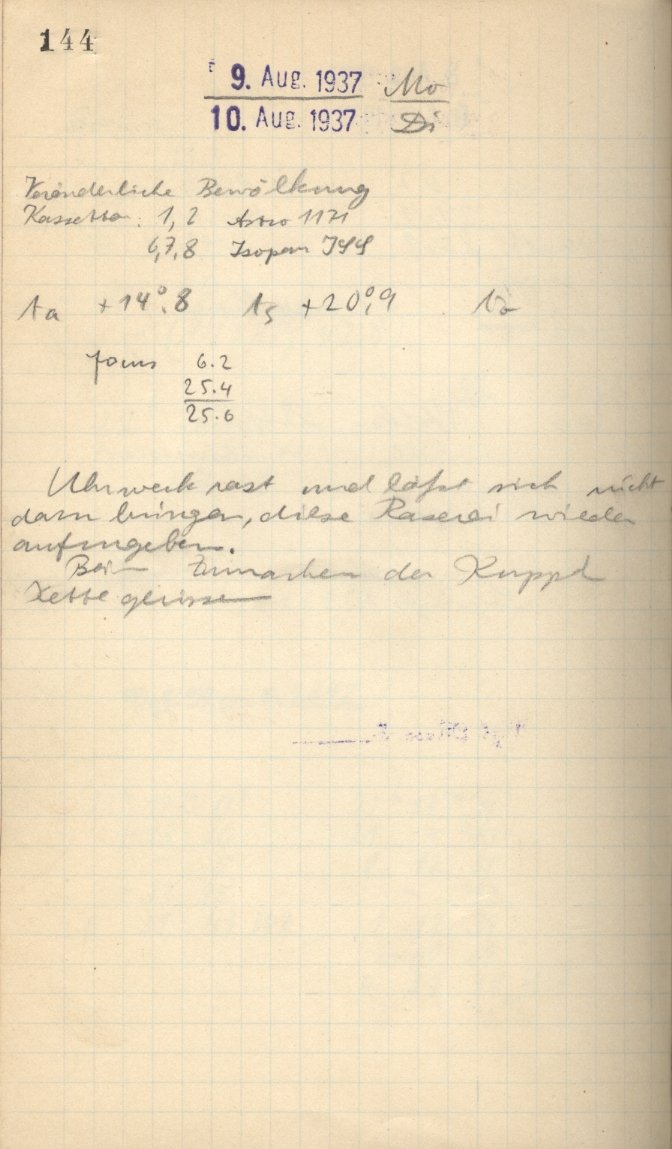 144
9. Aug. 1937 Mo
10. Aug. 1937 Di
Veränderliche Bewölkung
Kassetten: 1, 2 Astro 1171
6,7,8 Isopan ISS
ta +14°,8 ts +20°,9
focus 6.2
25.4
25.6
Uhrwerk rast und läßt sich nicht
dazu bringen, diese Raserei wieder
aufzugeben.
Beim Zumachen der Kuppel
Kette gerissen